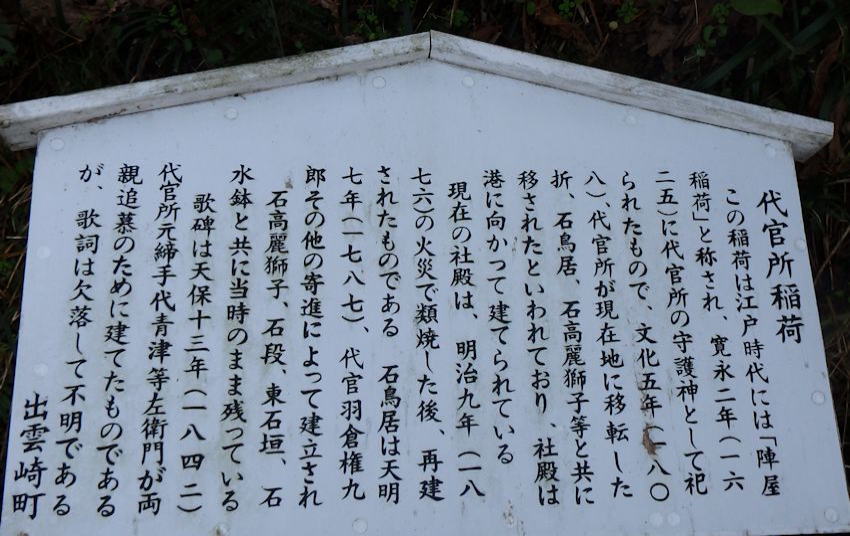 代官所稲荷
この稲荷は江戸時代には「陣屋
稲荷」と称され、寛永二年（一六
二五）に代官所の守護神として祀
られたもので、文化五年（一八〇
八）、代官所が現在地に移転した
折、石鳥居、石高麗獅子等と共に
移されたといわれており、社殿は
港に向かって建てられている
現在の社殿は、明治九年（一八
七六）の火災で類焼した後、再建
されたものである　石鳥居は天明
七年（一七八七）、代官羽倉権九
郎その他の寄進によって建立され
石高麗獅子、石段、東石垣、石
水鉢と共に当時のまま残っている
歌碑は天保十三年（一八四二）
代官所元締手代青津等左衛門が両
親追慕のために建てたものである
が、歌詞は欠落して不明である
出雲崎町